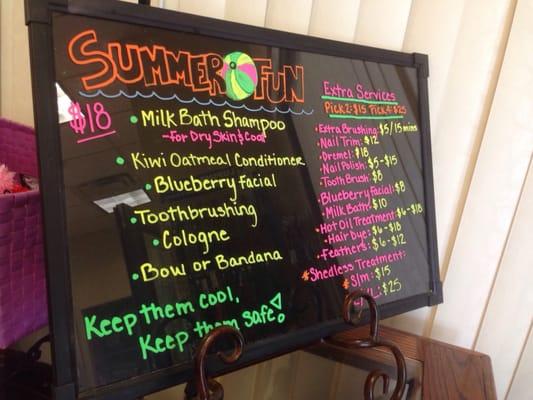 SUMMER FUN
$18
• MILK BATH SHAMPOO
-FOR DRY SKIN & COAT
• KIWI OATMEAL CONDITIONER
• BLUEBERRY FACIAL
• TOOTHBRUSHING
• COLOGNE
• BOW OR BANDANA
KEEP THEM COOL,
KEEP THEM SAFE!
EXTRA SERVICES
PICK 2: $15 PICK 4: $25
• EXTRA BRUSHING: $5/15 mins
• NAIL TRIM: $12
• DREMEL: $18
• NAIL POLISH: $5-$15
• TOOTH BRUSH: $8
• BLUEBERRY FACIAL: $8
• MILK BATH: $10
• HOT OIL TREATMENT: $6-$18
• HAIR DYE: $6-$18
• FEATHERS: $6-$12
* SHEDLESS TREATMENT:
* S/M: $15
L: $25